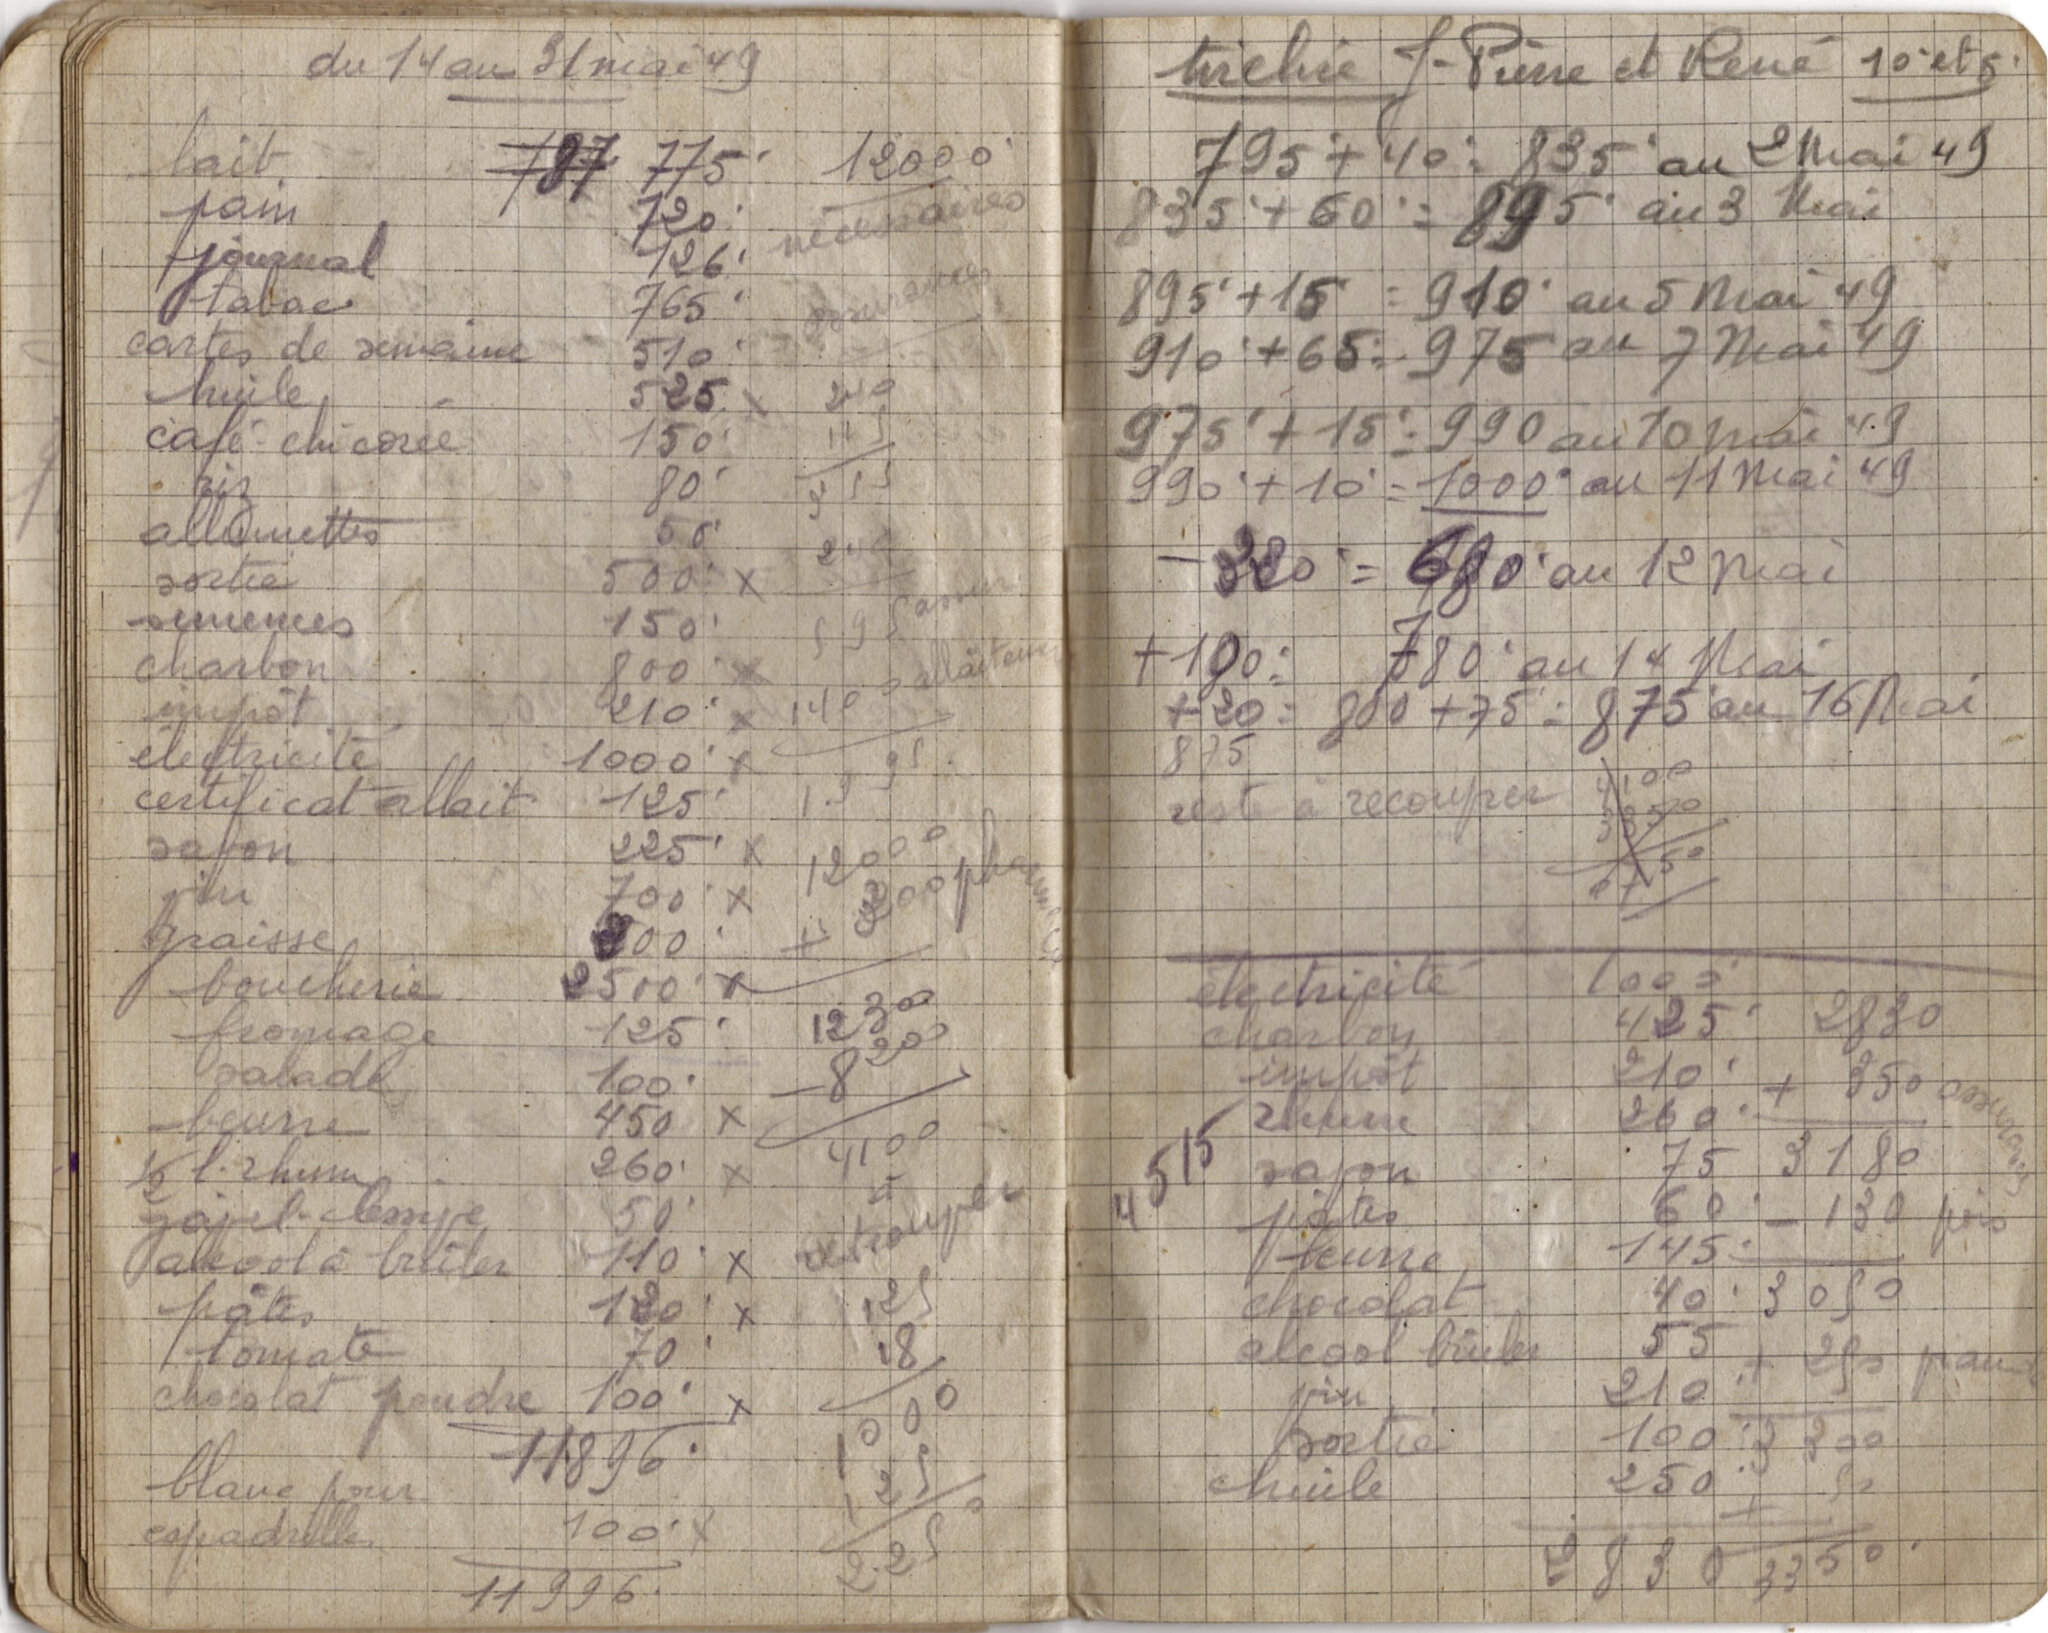 du 14 au 31 mai 49
lait 787 775'
pain 720'
journal 126'
tabac 765'
cartes de semaine 510'
huile 525 x
café-chicorée 150'
riz 80'
allumettes 50'
sortie 500' x
semences 150'
charbon 800' x
impôt 210' x
électricité 1000' x
certificat allait 125'
savon 225' x
vin 700' x
graisse 200'
boucherie 2500' x
fromage 125'
salade 100'
beurre 450 x
1/2 l. rhum 260' x
50'
alcool à brûler 110' x
pâtes 120' x
tomate 70'
chocolat poudre 100' x
11896'
blanc pour
espadrilles 100' x
11996'
12000'
nécessaires
240
355
240
595
1400
12000
+ 300
12300
- 8200
4100
à
125
18
1000
1250
2250
tirelire J-Pierre et René 10' et 5'
795' + 40' = 835' au 2 Mai 49
835' + 60' = 895' au 3 Mai
895' + 15' = 910' au 5 Mai 49
910' + 65' = 975 au 7 Mai 49
975' + 15' = 990 au 10 Mai 49
990' + 10' = 1000' au 11 Mai 49
- 320' = 680' au 12 Mai
+ 100 = 780' au 14 Mai
+ 20 = 800 + 75' = 875' au 16 Mai
875
reste à recouper 4100
électricité 1000'
charbon 425' 2830
impôt 210' + 350
rhum 260'
4515
savon 75 3180
pâtes 60' - 130 pois
beurre 145'
chocolat 40' 3050
alcool brûler 55 + 250
vin 210
sortie 100' 3300
huile 250' + 50
2830 3350'